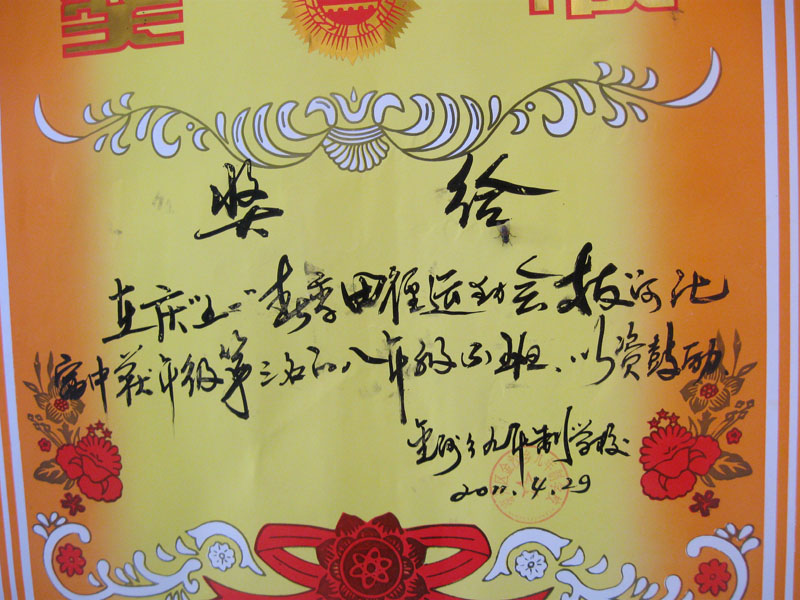 奖 给
在庆"五一"春季田径运动会拔河比
赛中获年级第三名的八年级四班、以资鼓励
九年制学校
2011.4.29